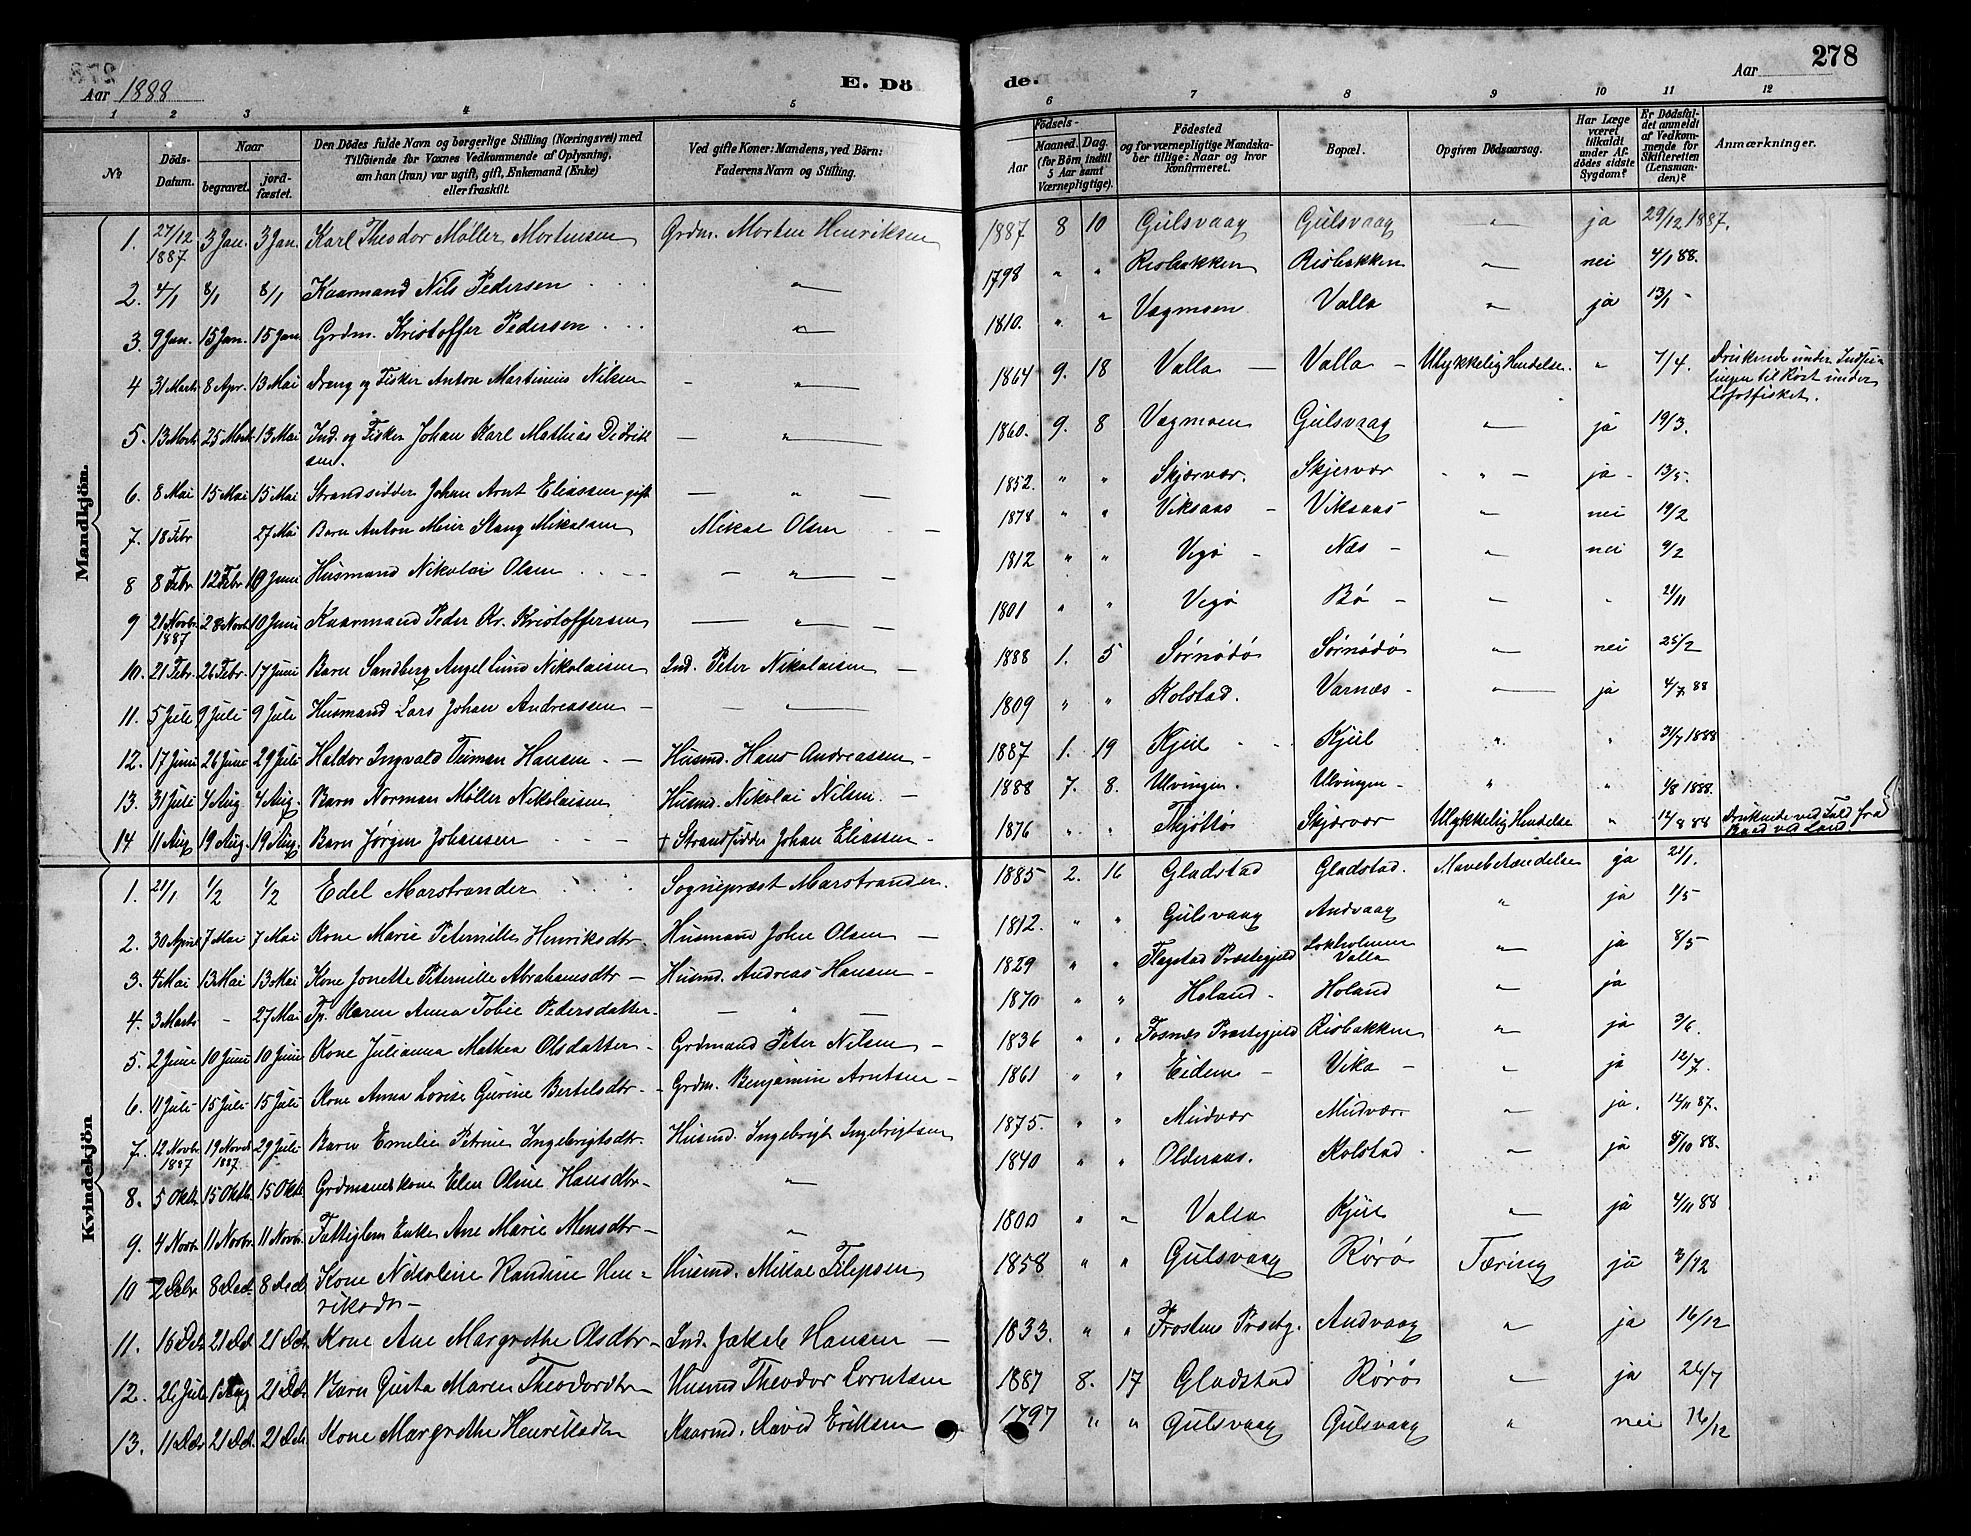 278
Aar 1888
E. Döde.
Aar
1 2 3 4 5 6 7 8 9 10 11 12
No
Döds-Datum.
Naar
begravet.
jordfæstet.
Den Dödes fulde Navn og borgerlige Stilling (Næringsvei) med
Tilföiende for Voxnes Vedkommende af Oplysning,
om han (hun) var ugift, gift, Enkemand (Enke)
eller fraskilt.
Ved gifte Koner: Mandens, ved Börn:
Faderens Navn og Stilling.
Födsels-
Aar
Maaned. Dag.
(for Börn indtil
5 Aar samt
Værnepligtige).
Födested
og for værnepligtige Mandska-
ber tillige: Naar og hvor
konfirmeret.
Bopæl.
Opgiven Dödsaarsag.
Har Læge
været
tilkaldt
under Af-
dödes sidste
Sygdom?
Er Dödsfal-
det anmeldt
af Vedkom-
mende for
Skifteretten
(Lensman-
den)?
Anmærkninger.
Mandkjön.
1. 27/12 1887 3 Jan. 3 Jan. Karl Theodor Møller Mortensen Grdm. Morten Henriksen 1887 8 10 Gulsvaag Gulsvaag " ja 29/12 1887.
2. 4/1 8/1 8/1 Kaarmand Nils Pedersen " 1798 " " Risbakken Risbakken " nei 4/1 88.
3. 9 Jan. 15 Jan. 15 Jan. Grdm. Kristoffer Pedersen " 1810. " " Vagmoen Valla " ja 13/1 -
4 31 Marts 8 Apr. 13 Mai Dreng og Fisker Anton Martinius Nilsen - " 1864 9. 18 Valla - Valla - Ulykkelig Hendelse. " 7/4. Druknede under Indsei-
lingen til Røst under
Lofotfisket.
5. 13 Mart 25 Mart 13 Mai Ind. og Fisker Johan Karl Mathias Didrik
sen. - " 1860. 9. 8 Vagmoen Gulsvaag " ja 19/3.
6. 8 Mai 15 Mai 15 Mai Strandsidder Johan Arnt Eliassen gift - " 1852. " " Skjærvær. Skjervær - " - ja - 13/5.
7. 18 Febr 27 Mai Barn Anton Meier Stang Mikalsen Mikal Olsen - 1878 " " Viksaas - Viksaas - " nei 19/2
8 8 Febr 12 Febr 10 Juni Husmand Nikolai Olsen - " - 1812 " " Vegø - Næs - " nei 9/2
9 21 Novbr 1887 28 Novbr 10 Juni Kaarmand Peder Kr. Kristoffersen - " - 1801 " " Vegø Bø - " " 21/11
10. 21 Febr. 26 Febr. 17 Juni Barn Sandberg Angel Lund Nikolaisen Ind. Peter Nikolaisen - 1888 1. 5 Sørnødø Sørnødø " nei 25/2
11. 5 Juli 9 Juli 9 Juli Husmand Lars Johan Andreassen - - " 1809 " " Kolstad. Varnæs - " ja 4/7 88
12. 17 Juni 26 Juni 29 Juli Haldor Ingvald Teiman Hansen - Husmd. Hans Andreassen - 1887 1. 19 Kjul Kjul " " 31/7 1888
13. 31 Juli 4 Aug. 4 Aug. Barn Norman Møller Nikolaisen Husmd. Nikolai Nilsen - 1888 7. 8. Ulvingen. Ulvingen - " " 1/8 1888.
14 11 Aug 19 Aug. 19 Aug. Barn Jørgen Johansen - + Strandsidder Johan Eliassen - 1876 " " Thjøttø Skjærvær Ulykkelig Hendelse " 14/8 88 Druknede ved Fald fra
Baad ved Land
Kvindekjön
1. 21/1 1/2 1/2 Edel Marstrander Sognepræst Marstrander. 1885 2. 16 Gladstad Gladstad. Mavebetændelse ja 21/1.
2. 30 April 7 Mai 7 Mai Kone Marie Peternille Henriksdtr. Husmand John Olsen - 1812. " " Gulsvaag Andvaag " ja 1/5
3. 4 Mai 13 Mai 13 Mai Kone Jonette Peternille Abrahamsdtr - Husmd. Andreas Hansen - 1829 " " Flagstad Præstegjeld Lokholmen
Valla " ja 8/5 -
4. 3 Marts - 27 Mai Tp. Karen Anna Tobie Pedersdatter - - " - 1870 " " Holand - Holand " ja
5. 2 Juni 10 Juni 10 Juni Kone Julianna Mathea Olsdatter - Grdmand Peter Nilsen - 1836 " " Fosnæs Præstegjeld Risbakken " ja 3/6
6. 11 Juli 15 Juli 15 Juli Kone Anna Lovise Gurine Bertelsdtr - Grdm. Benjamin Arntsen - 1861 " " Eidem - Vika - " ja 12/7.
7. 12 Novbr 1887 19 Novb 1887 29 Juli Barn Emelie Petrine Ingebrigtsdtr. Husmd. Ingebrigt Ingebrigtsen 1875. " " Mudvær Mudvær " ja. 12/11 87.
8. 5 Oktb 15 Oktb. 15 Oktb. Grdmandskone Elen Oline Hansdtr - " 1840 " " Olderaas. Kolstad " ja 5/10 88.
9. 4 Novbr 11 Novbr. 11 Novbr. Fattiglem Enke Ane Marie Mensdtr - " 1800 " " Valla Kjul " ja 4/11 88
10 2 Debr 8 Ded. 8 Ded. Kone Nikoline Randine Hen-
riksdtr - Husmd. Mikal Filipsen 1858 " " Gulsvaag Rørø Tæring ja 3/12
11. 16 Debr 21 Ded. 21 Ded. Kone Ane Margrethe Olsdtr - Ind. Jakob Hansen - 1833. " " Frosten Præstg. Andvaag " ja 16/12
12. 26 Juli 1 Aug 21 Ded. Barn Gusta Maren Theodordtr - Husmd Theodor Lorntsen 1887 8. 17 Gladstad Rørø " ja 26/7
13. 11 Ded 21 Ded. 21 Ded. Kone Margrethe Henriksdtr Kaarmd. David Eriksen 1797 " " Gulsvaag Gulsvaag " nei 16/12